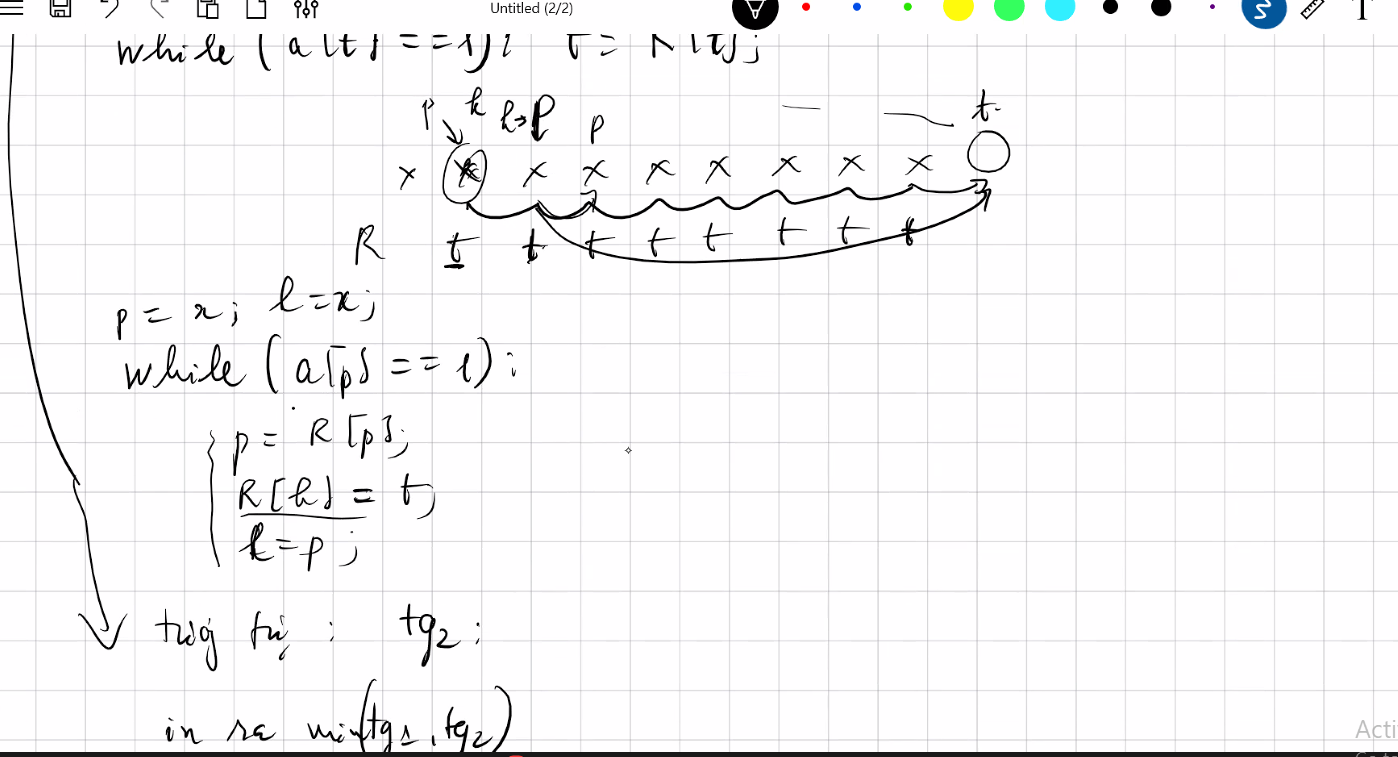 Untitled (2/2)
T
while (a[t] == 1): t = R[t];
p k k→p p t
x x x x x x x x x
R t t t t t t t t
p = x; k = x;
while (a[p] == 1):
p = R[p];
R[k] = t;
k = p;
tương tự : tg2 :
in ra min(tg1, tg2)
Acti